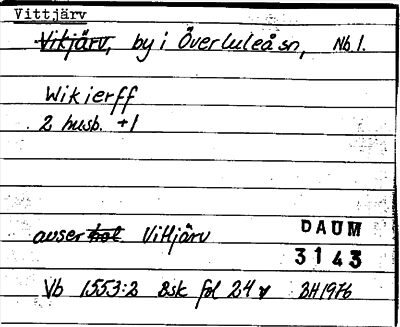 Vittjärv
Vikjärv, by i Överluleå sn, Nb.l.
Wikierff
2 husb. +1
avser Vittjärv
DAUM
3143
Vb 1553:2 Bsk fol 24 v BH1976